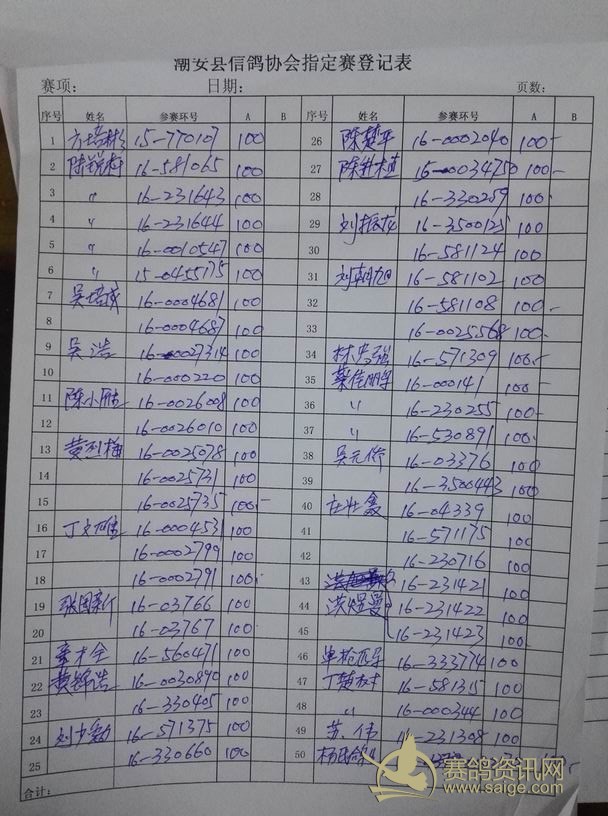 潮安县信鸽协会指定赛登记表
赛项： 日期： 页数：
序号 姓名 参赛环号 A B 序号 姓名 参赛环号 A B
1 15-770107 100 26 陈楚平 16-0002040 100-
2 陈锐梓 16-581065 100 27 陈 15-00034750 100-
3 〃 16-231643 100 28 16-330259 100
4 〃 16-231644 100 29 刘振龙 16-3500125 100
5 〃 16-0010547 100 30 16-581124 100
6 〃 15-0455175 100 31 刘朝旭 16-581102 100
7 吴培 16-0004681 100 32 16-581108 100-
8 16-0004687 100 33 16-0025568 100-
9 吴浩 16-00027314 100 34 林 强 16-571309 100-
10 16-000220 100 35 蔡佳 16-000141 100
11 陈小 16-0026008 100 36 〃 16-230255 100-
12 16-0026010 100 37 〃 16-530891 100-
13 黄 16-0025078 100 38 吴元侨 16-03376 100
14 16-0025731 100 39 16-3500443 100
15 16-0025735 100- 40 庄壮 16-04339 100
16 丁文雄 16-0004531 100 41 16-571175 100
17 16-0002799 100 42 16-230716 100
18 16-0002791 100 43 16-231421 100
19 张国 16-03766 100 44 洪煜曼 16-231422 100
20 16-03767 100 45 16-231423 100
21 才全 16-560471 100 46 16-333774 100
22 黄 浩 16-0030890 100 47 丁楚 16-581315 100
23 16-330405 100 48 〃 16-000344 100
24 刘少 16-571375 100 49 苏伟 16-231308 100
25 16-330660 100 50 杨
合计：
赛鸽资讯网
www.saige.com